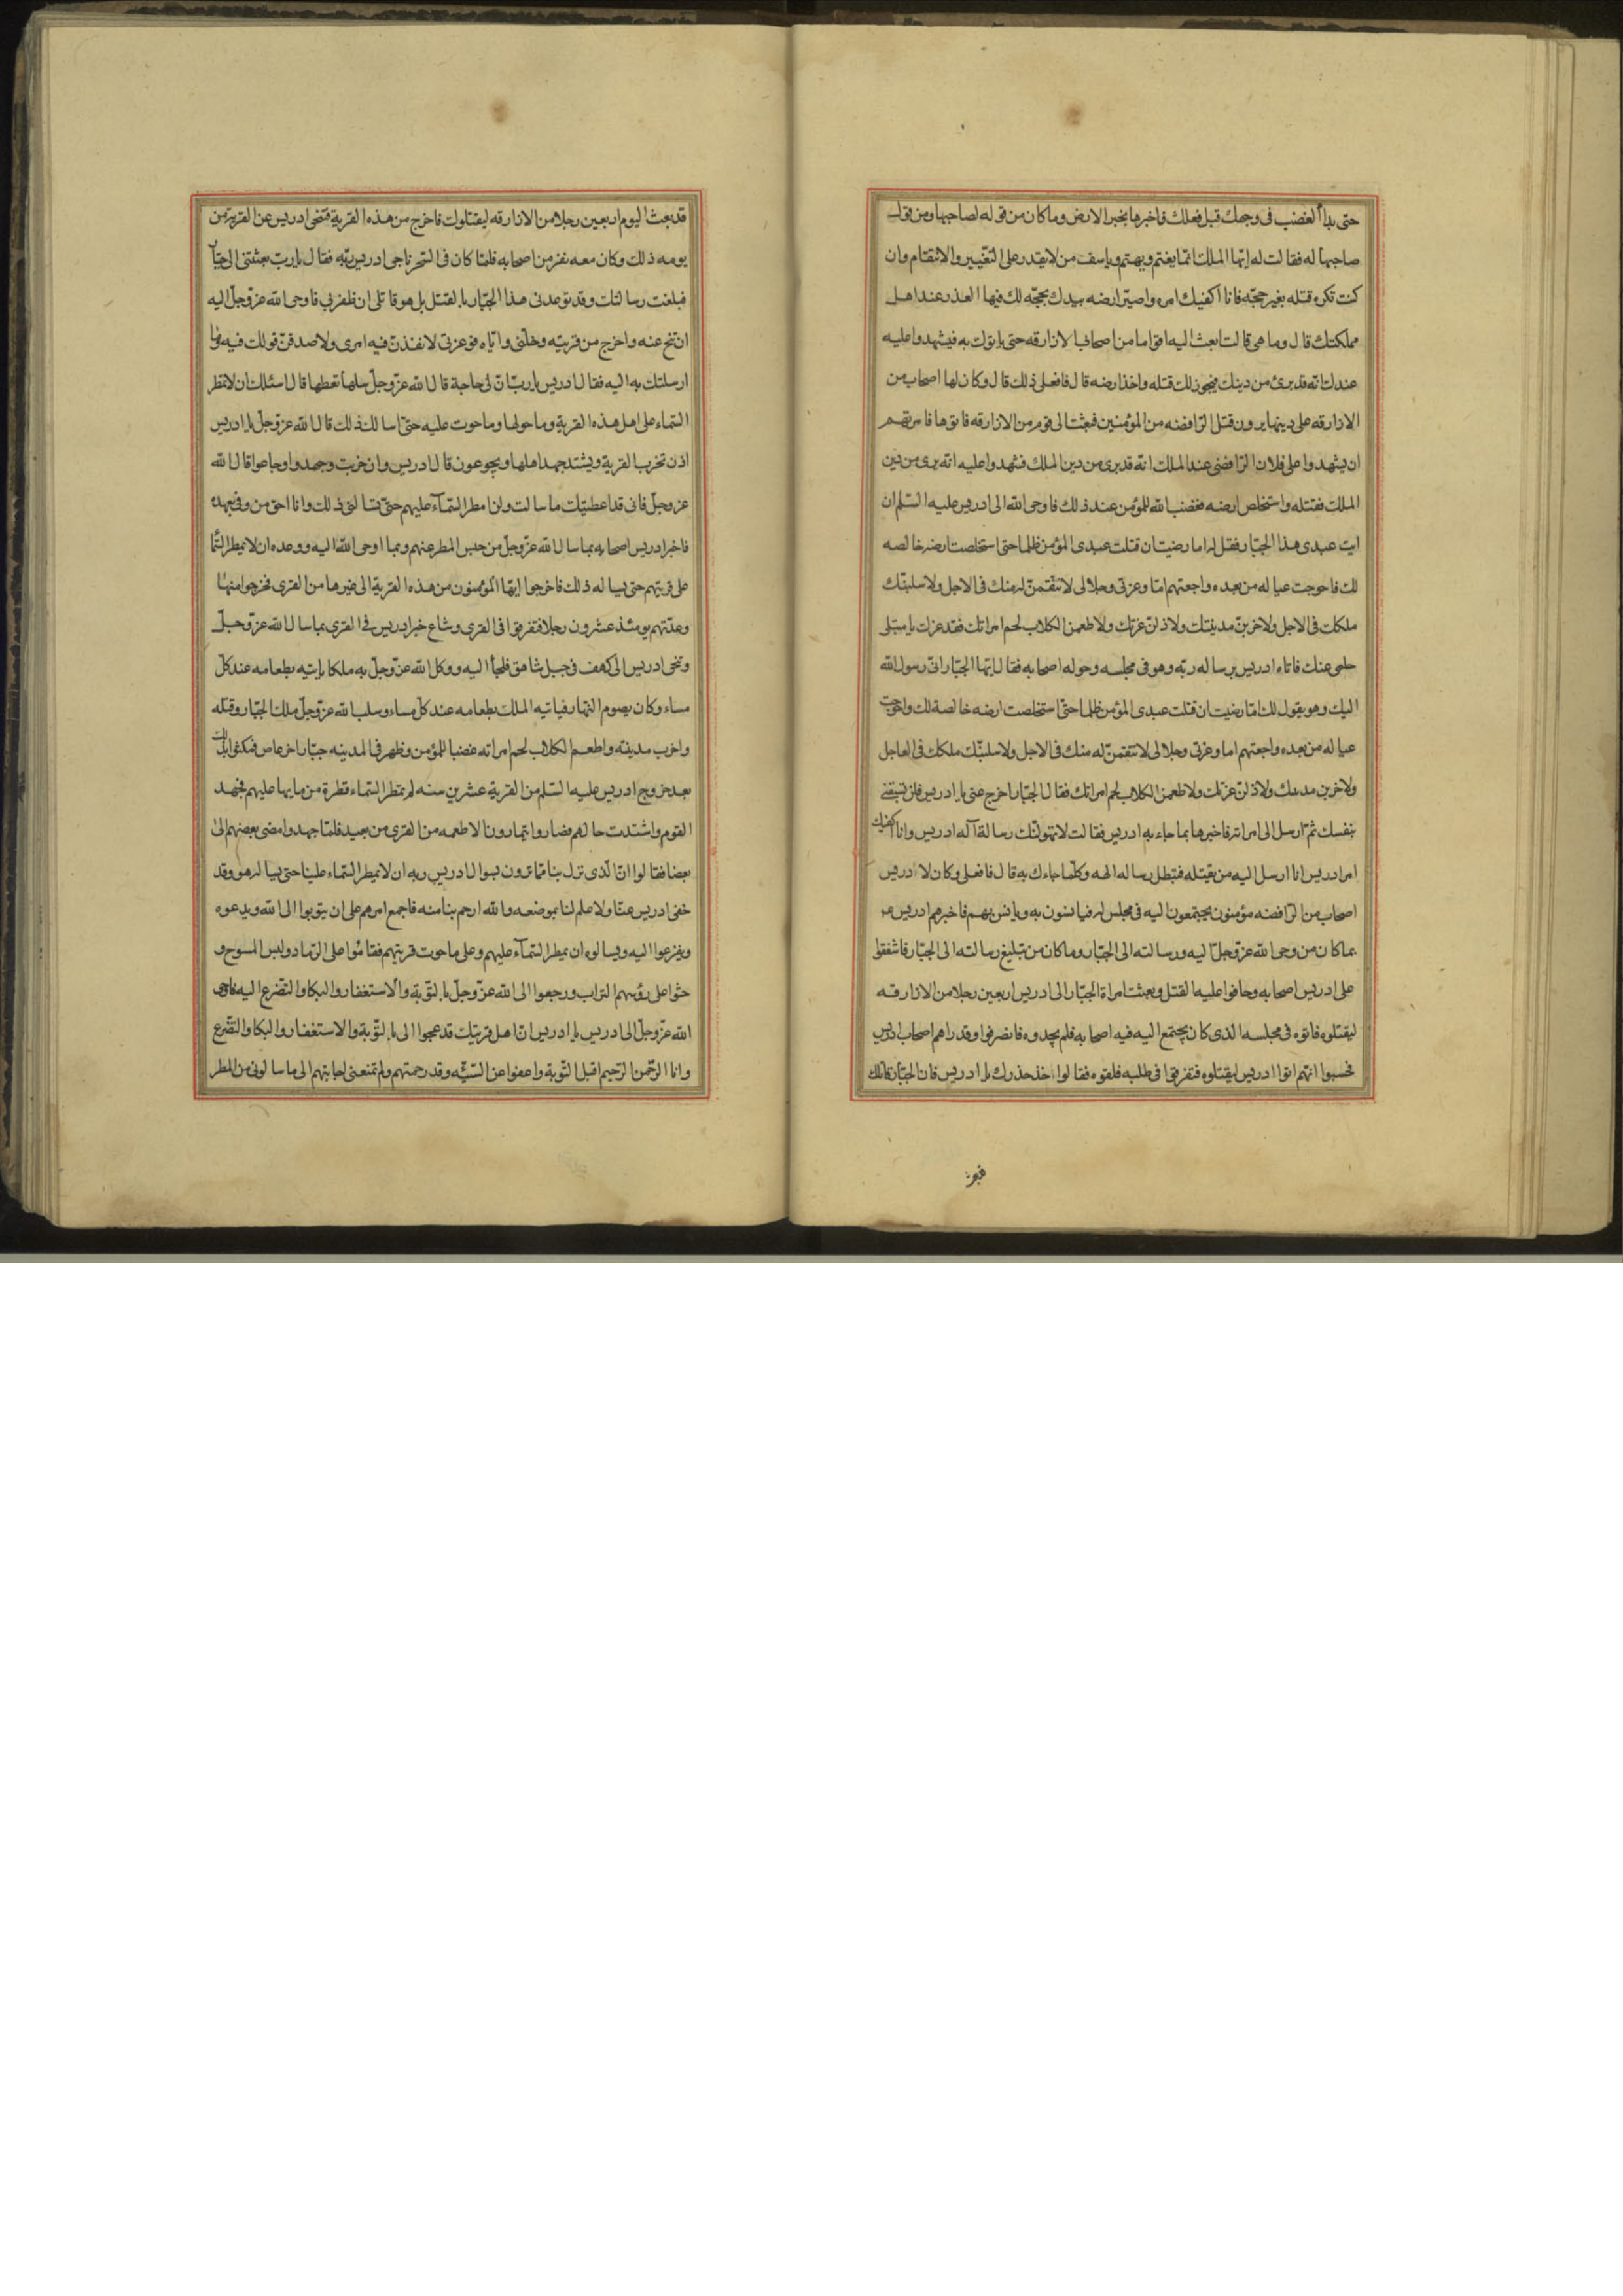 حتى بدأ الغضب فى وجهك قبل فعلك فاخبرها بخبر الارض وما كان من قوله لصاحبها ومن قول
صاحبها له فقالت له ايّها الملك انّما يغتم ويهتم وياسف من لا يقدر على التغيير والانتقام وان
كنت تكره قتله بغير حجّه فانا اكفيك امره واصيّر ارضه بيدك بحجّه لك فيها العذر عند اهل
مملكتك قال وما هى قالت ابعث اليه اقواما من اصحابنا الازارقه حتى ياتوك به فيشهدوا عليه
عندك انّه قد برئ من دينك فيجوز لك قتله واخذ ارضه قال فافعلى ذلك قال وكان لها اصحاب من
الازارقه على دينها يرون قتل الرّافضه من المؤمنين فبعثت الى قوم من الازارقه فاتوها فامرتهم
ان يشهدوا على فلان الرّافضى عند الملك انّه قد برى من دين الملك فشهدوا عليه انّه برى من دين
الملك فقتله واستخلص ارضه فغضب الله للمؤمن عند ذلك فاوحى الله الى ادريس عليه السّلم ان
ايت عبدى هذا الجبّار فقل له اما رضيت ان قتلت عبدى المؤمن ظلما حتى استخلصت ارضه خالصه
لك فاحوجت عياله من بعده واجعتهم امّا وعزتى وجلالى لانتقمنّ له منك فى الاجل ولاسلبنّك
ملكك فى الاجل ولاخربنّ مدينتك ولاذلنّ عزّك ولاطعمن الكلاب لحم امراتك فقد غرك يا مبتلى
حلمى عنك فاتاه ادريس برساله ربّه وهو فى مجلسه وحوله اصحابه فقال ايّها الجبّار انّى رسول الله
اليك وهو يقول لك امّا رضيت ان قتلت عبدى المؤمن ظلما حتّى استخلصت ارضه خالصة لك واحوجت
عياله من بعده واجعتهم اما وعزتى وجلالى لانتقمنّ له منك فى الاجل ولاسلبنّك ملكك فى العاجل
ولاخربن مدينتك ولاذلنّ عزّك ولاطعمن الكلاب لحم امراتك فقال الجبّار اخرج عنى يا ادريس فلن تسبقنى
بنفسك ثمّ ارسل الى امراته فاخبرها بما جاءه به ادريس فقالت لا تهولنّك رسالة آله ادريس وانا اكفيك
امر ادريس انا ارسل اليه من يقتله فتبطل رساله الهه وكلّما جاءك به قال فافعلى وكان لادريس
اصحاب من الرّافضه مؤمنون يجتمعون اليه فى مجلس له فيانسون به ويانس بهم فاخبرهم ادريس
بما كان من وحى الله عزّ وجلّ اليه ورسالته الى الجبّار وما كان من تبليغ رسالته الى الجبّار فاشفقوا
على ادريس اصحابه وخافوا عليه القتل وبعثت امراة الجبّار الى ادريس اربعين رجلا من الازارقه
ليقتلوه فاتوه فى مجلسه الذى كان يجتمع اليه فيه اصحابه فلم يجدوه فانصرفوا وقد راهم اصحاب ادريس
فحسبوا انّهم اتوا ادريس ليقتلوه فتفرقوا فى طلبه فلقوه فقالوا خذ حذرك يا ادريس فان الجبّار قاتلك
قد بعث اليوم اربعين رجلا من الازارقه ليقتلوك فاخرج من هذه القرية فتنحى ادريس عن القرية من
يومه ذلك وكان معه نفر من اصحابه فلمّا كان فى السّحر ناجى ادريس ربّه فقال يا ربّ بعثتنى الى جبّار
فبلغت رسالتك وقد توعدنى هذا الجبّار بالقتل بل هو قاتلى ان ظفر بى فاوحى الله عزّ وجلّ اليه
ان تنحّ عنه واخرج من قريتيه وخلّنى وايّاه فوعزتى لانفذنّ فيه امرى ولاصدقنّ قولك فيه وما
ارسلتك به اليه فقال ادريس يا ربّ انّ لى حاجة قال الله عزّ وجلّ سلها تعطها قال اسئلك ان لا تمطر
السّماء على اهل هذه القرية وما حولها وما حوت عليه حتّى اسالك ذلك قال الله عزّ وجلّ يا ادريس
اذن تخرب القرية ويشتد جهد اهلها ويجوعون قال ادريس وان خربت وجهدوا وجاعوا قال الله
عز وجلّ فانى قد اعطيتك ما سالت ولن امطر السّمآء عليهم حتّى تسالنى ذلك وانا احق من وفى بعهده
فاخبر ادريس اصحابه بما سال الله عزّ وجلّ من حبس المطر عنهم وبما اوحى الله اليه ووعده ان لا يمطر السّما
على قريتهم حتى يساله ذلك فاخرجوا ايّها المؤمنون من هذه القرية الى غيرها من القرى فخرجوا منها
وعدّتهم يومئذ عشرون رجلا فتفرقوا فى القرى وشاع خبر ادريس فى القرى بما سال الله عزّ وجلّ
وتنحى ادريس الى كهف فى جبل شاهق فلجأ اليه ووكل الله عزّ وجلّ به ملكا ياتيه بطعامه عند كلّ
مساء وكان يصوم النّهار فياتيه الملك بطعامه عند كلّ مساء وسلب الله عزّ وجلّ ملك الجبّار وقتله
واخرب مدينته واطعم الكلاب لحم امراته غضبا للمؤمن وظهر فى المدينه جبّار اخر عاص فمكثوا بذلك
بعد خروج ادريس عليه السّلم من القرية عشرين سنه لم تمطر السّماء قطرة من مايها عليهم فجهد
القوم واشتدت حالهم فصاروا يتمارون الاطعمه من القرى من بعيد فلمّا جهدوا مضى بعضهم الى
بعضا فقالوا انّ الّذى نزل بنا ممّا ترون بسوال ادريس ربه ان لا يمطر السّماء علينا حتى يساله هو وقد
خفى ادريس عنّا ولا علم لنا بموضعه والله ارحم بنا منه فاجمع امرهم على ان يتوبوا الى الله ويدعوه
ويفزعوا اليه ويسالوه ان يمطر السّمآء عليهم وعلى ما حوت قريتهم فقامُوا على الرّماد ولبس المسوح و
حثوا على رؤسهم التراب ورجعوا الى الله عزّ وجلّ بالتّوبة والأستغفار والبكا والتضرع اليه فاوحى
الله عزّ وجلّ الى ادريس يا ادريس انّ اهل قريتك قد عجوا الى بالتّوبة والاستغفار والبكا والتضرع
وانا الرّحمن الرّحيم اقبل التّوبة واعفوا عن السّيّئه وقد رحمتهم ولم تمنعنى اجابتهم الى ما سالونى من المطر